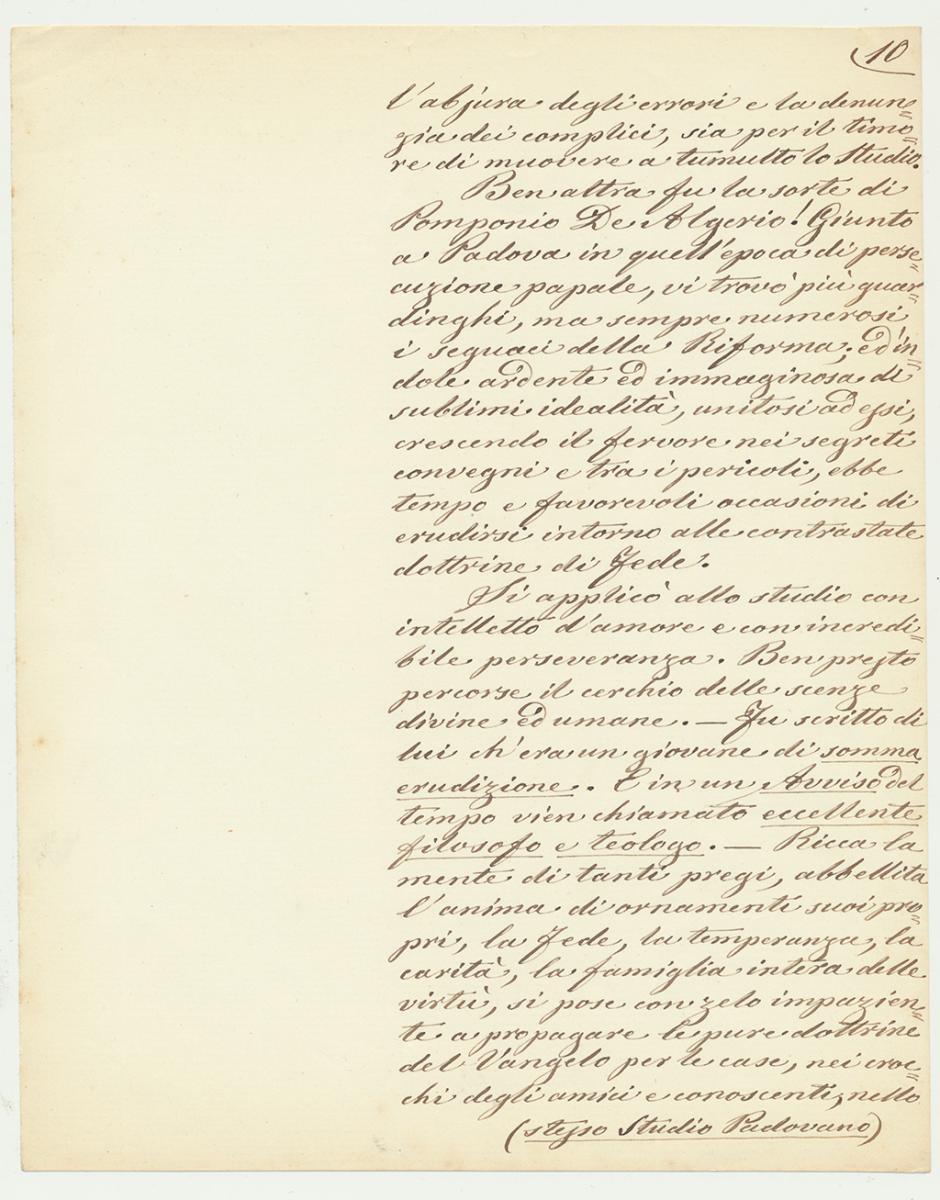 10
l'abjura degli errori e la denun=
zia dei complici, sia per il timo=
re di muovere a tumulto lo Studio.
Ben altra fu la sorte di
Pomponio De Algerio! Giunto
a Padova in quell'epoca di perse=
cuzione papale, vi trovò più guar=
dinghi, ma sempre numerosi
i seguaci della Riforma; ed in=
dole ardente ed immaginosa di
sublimi idealità, unitosi ad essi,
crescendo il fervore nei segreti
convegni e tra i pericoli, ebbe
tempo e favorevoli occasioni di
erudirsi intorno alle contrastate
dottrine di Fede.
Si applicò allo studio con
intelletto d'amore e con incredi=
bile perseveranza. Ben presto
percorse il cerchio delle scenze
divine ed umane. — Fu scritto di
lui ch'era un giovane di somma
erudizione. E in un Avviso del
tempo vien chiamato eccellente
filosofo e teologo. — Ricca la
mente di tanti pregi, abbellita
l'anima di ornamenti suoi pro=
pri, la Fede, la temperanza, la
carità, la famiglia intera delle
virtù, si pose con zelo impazien=
te a propagare le pure dottrine
del Vangelo per le case, nei croc=
chi degli amici e conoscenti, nello
(stesso Studio Padovano)